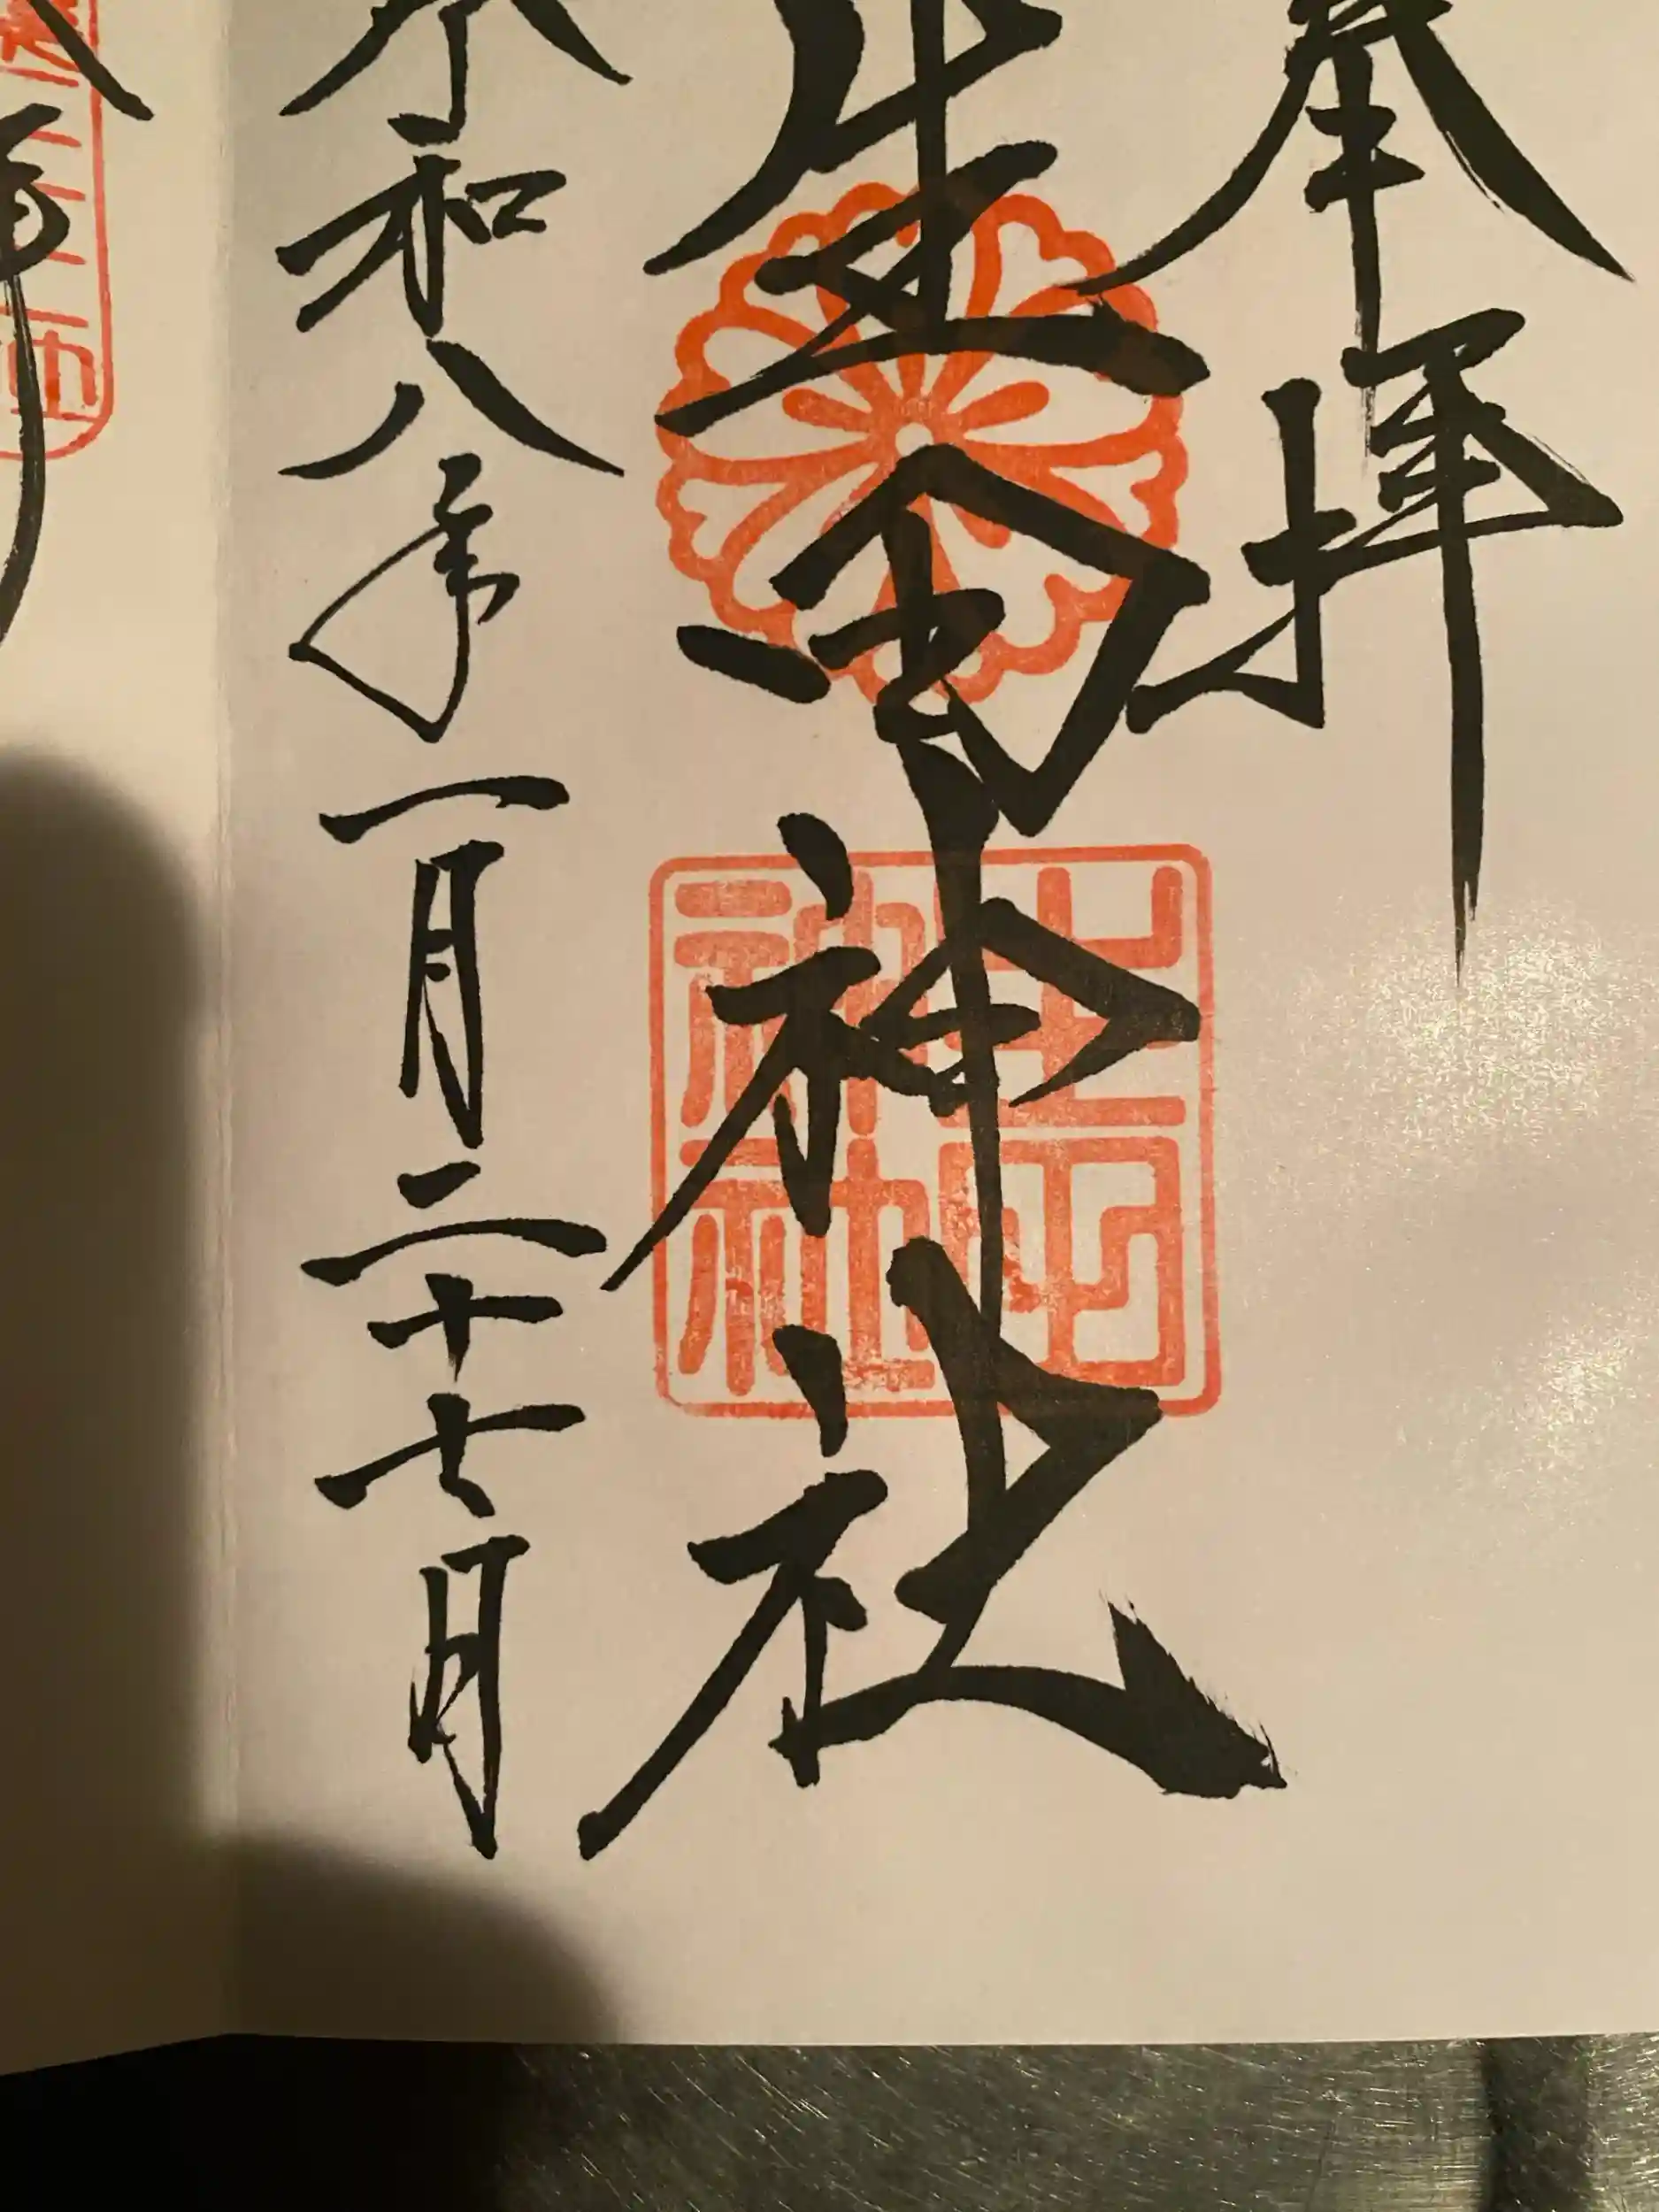 奉拝
生田神社
令和八年一月二十七日
生田神社